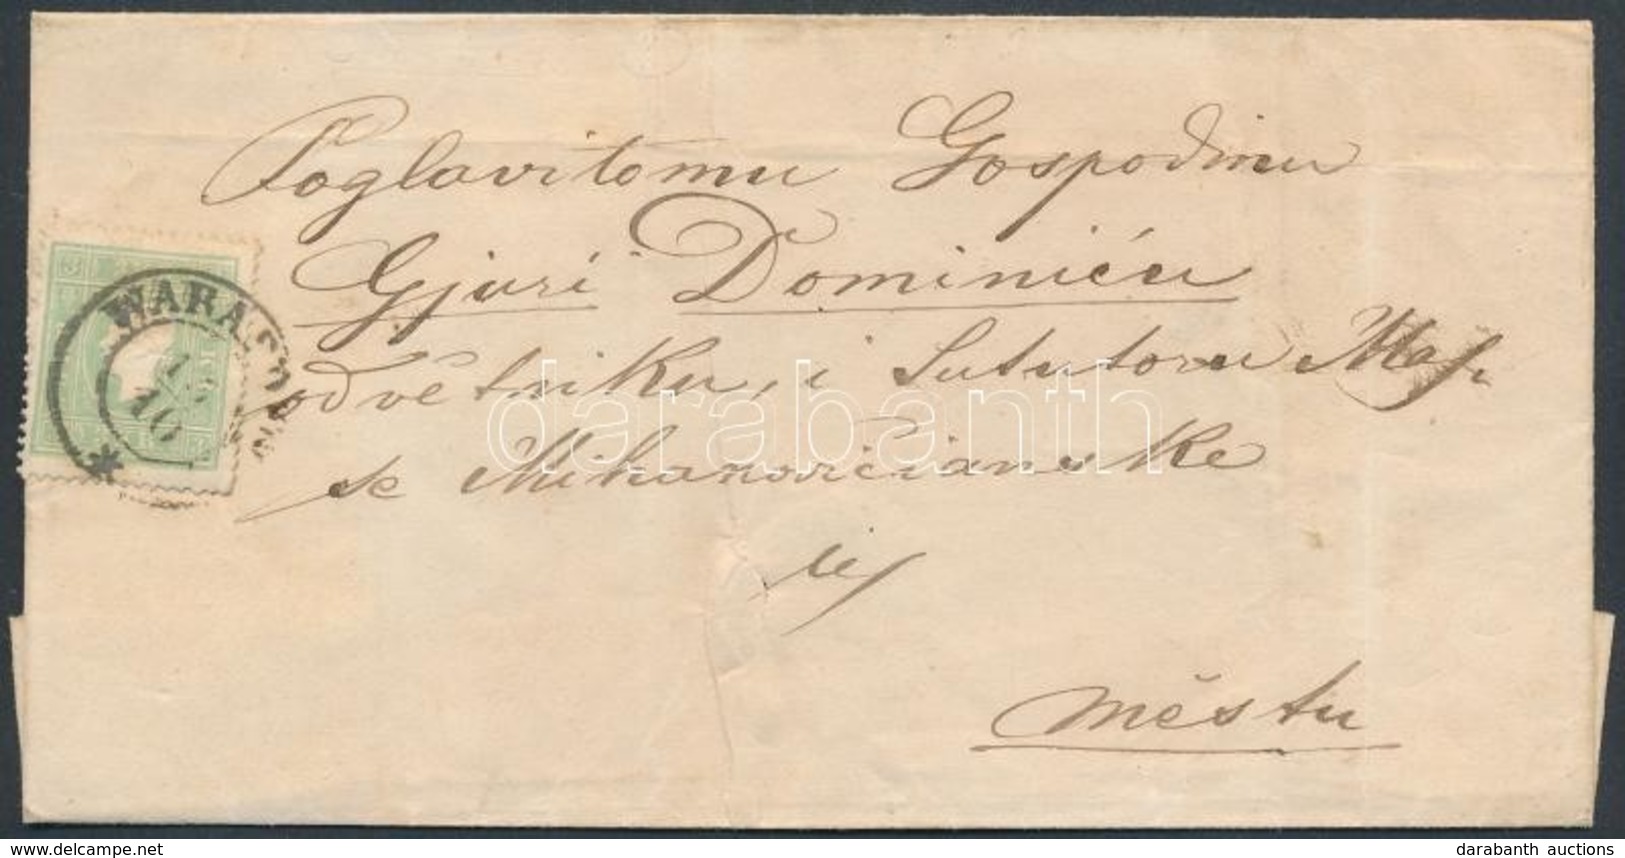 Poglavitomu Gospodinu
Gjuri Dominiću
odvětniku, i Sututoru
se Mihanovićianske
u
Městu
WARASDIN
10
3
darabanth
darabanth auctions